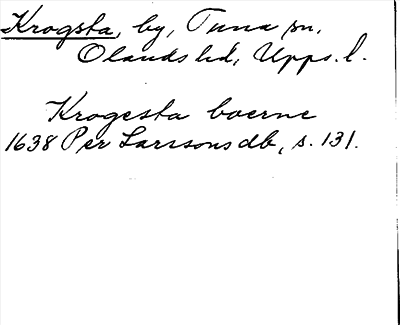 Krogsta, by, Tuna sn,
Olands hd, Upps. l.
Krogesta boerne
1638 Per Larssons db, s. 131.